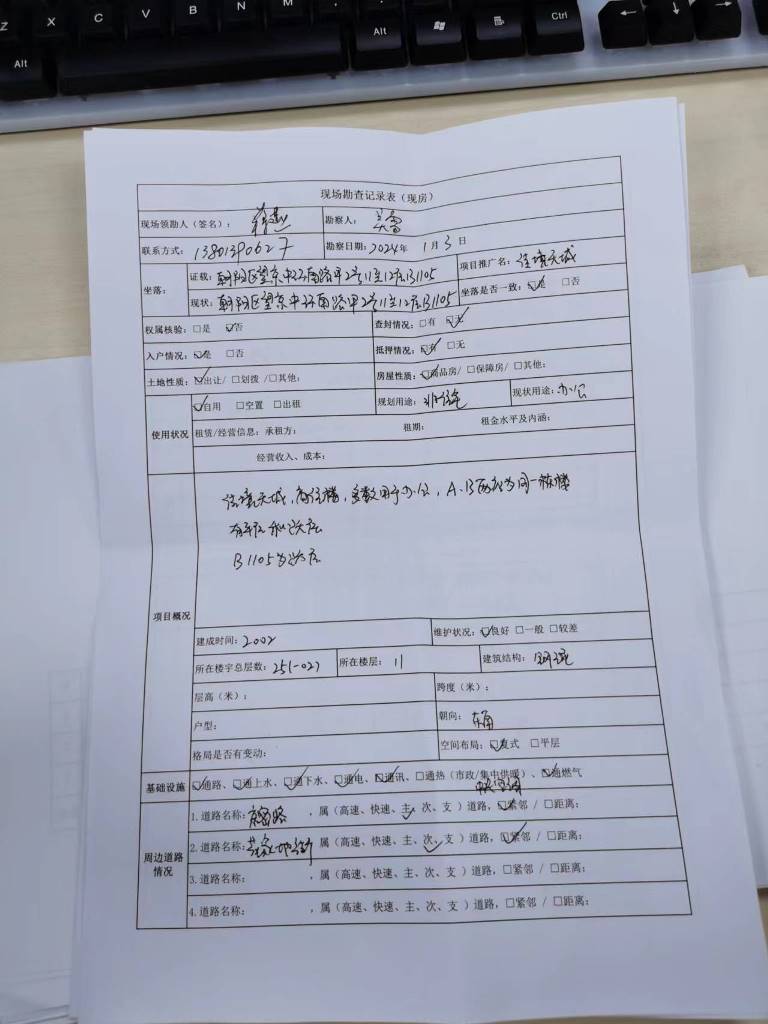 Z X C V B N M
Alt
Alt
Ctrl
现场勘查记录表（现房）
现场领勘人（签名）： 勘察人：
联系方式： 13801390627 勘察日期：2024年 1月 3日
坐落： 证载：朝阳区望京中环南路甲2号11至12层B1105 项目推广名：佳境天城
现状：朝阳区望京中环南路甲2号11至12层B1105 坐落是否一致：☑是 □否
权属核验：□是 ☑否 查封情况：□有 ☑无
入户情况：☑是 □否 抵押情况：☑有 □无
土地性质：☑出让/ □划拨 /□其他： 房屋性质：☑商品房/ □保障房/ □其他：
使用状况 ☑自用 □空置 □出租 规划用途：非住宅 现状用途：办公
租赁/经营信息：承租方： 租期： 租金水平及内涵：
经营收入、成本：
项目概况
佳境天城，商住楼，多数用于办公，A.B两座为同一栋楼
有平层和跃层
B1105为跃层
建成时间：2002 维护状况：☑良好 □一般 □较差
所在楼宇总层数：25(-02) 所在楼层：11 建筑结构：钢混
层高（米）： 跨度（米）：
户型： 朝向：东南
格局是否有变动： 空间布局：☑复式 □平层
基础设施 ☑通路、☑通上水、☑通下水、☑通电、☑通讯、□通热（市政/集中供暖）、☑通燃气
周边道路情况
1.道路名称： ，属（高速、快速、主、次、支）道路，☑紧邻 / □距离：
2.道路名称： 属（高速、快速、主、次、支）道路，☑紧邻 / □距离：
3.道路名称： ，属（高速、快速、主、次、支）道路，□紧邻 / □距离：
4.道路名称： ，属（高速、快速、主、次、支）道路，□紧邻 / □距离：